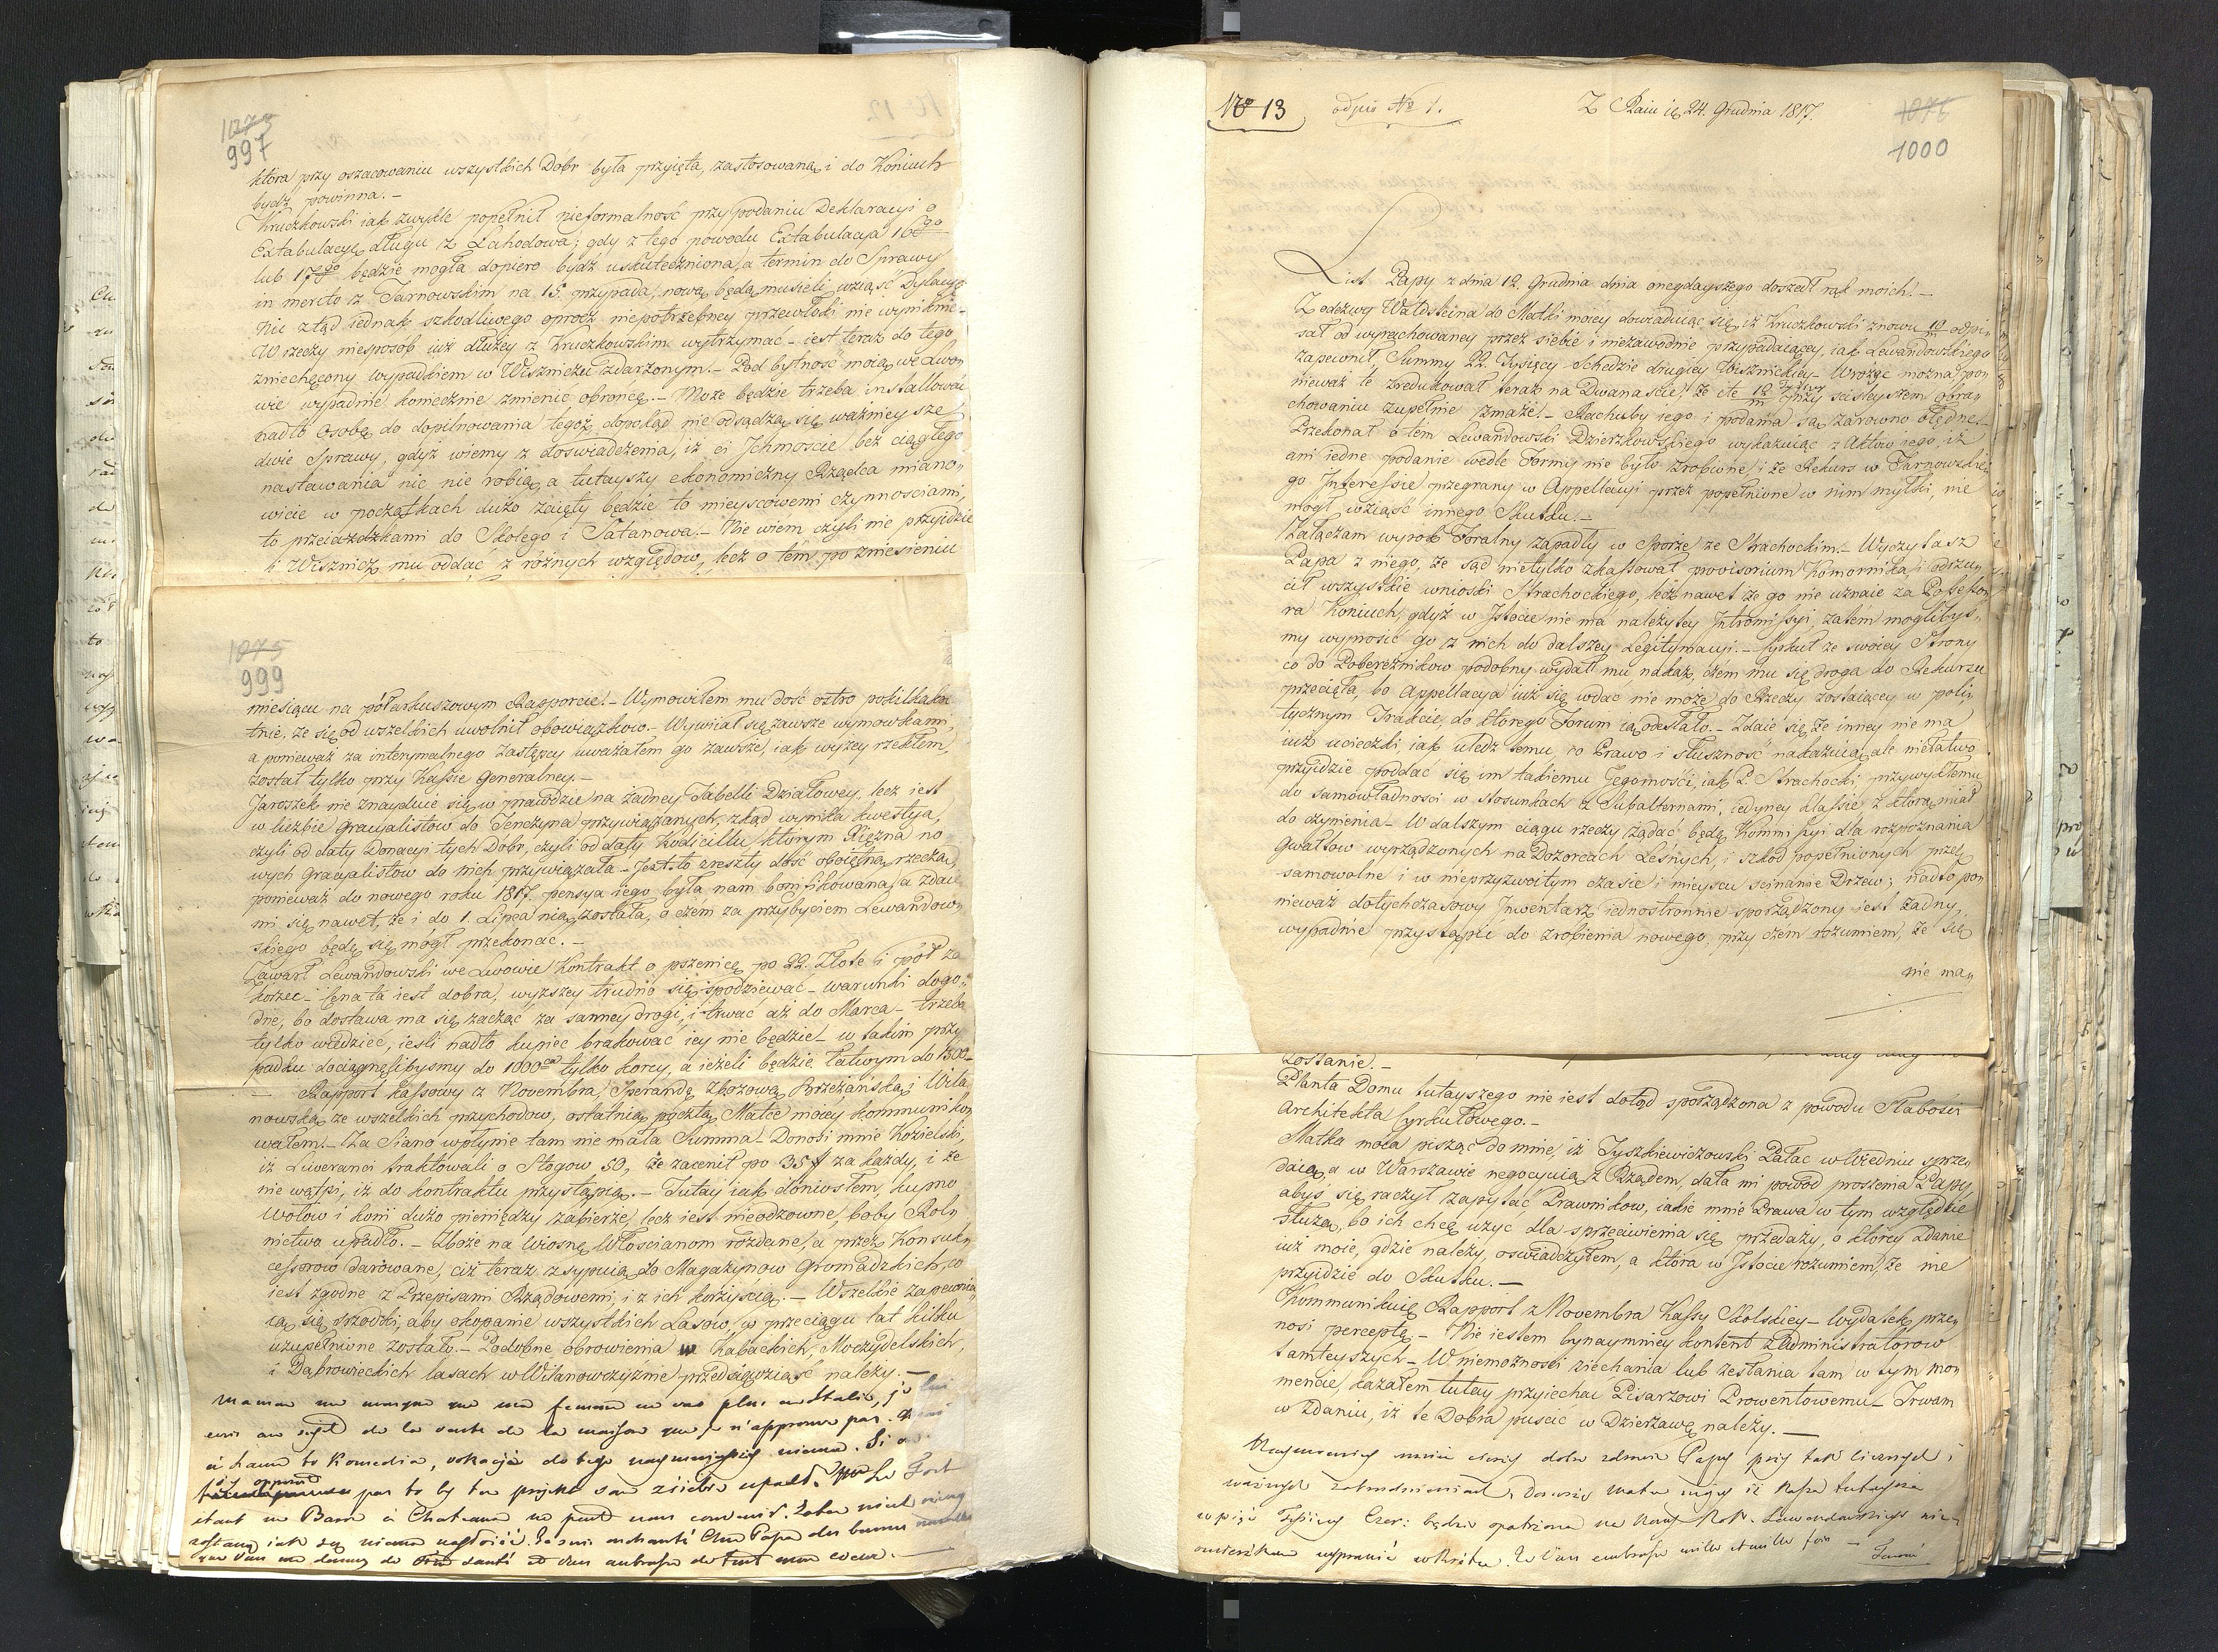 1073
997
która przy oszacowaniu wszystkich Dóbr była przyięta, zastosowaną i do Koniuch
bydź powinna. –
Kruczkowski iak zwykle popełnił nieformalność przy podaniu Deklaracyi o
Extabulacyę długu z Lahodowa; gdy z tego powodu Extabulacya 16go
lub 17go będzie mogła dopiero bydź uskuteczniona, a termin do Sprawy
in merito z Tarnowskim na 15. przypada, nową będą musieli wziąść Dylacyę
Nic ztąd iednak szkodliwego oprócz niepotrzebney przewłoki nie wyniknie –
W rzeczy niesposób iuż dłużey z Kruczkowskim wytrzymać – iest teraz do tego
zniechęcony wypadkiem w Wiszniczu zdarzonym. – Pod bytność moią we Lwo„
wie wypadnie koniecznie zmienić obrońcę. – Może będzie trzeba installować
nadto Osobę do dopilnowania tegoż, dopokąd nie odsądzą się ważniey sze
dwie Sprawy, gdyż wiemy z doswiadczenia, iż ci Ichmoscie bez ciągłego
nastawania nic nie robią, a tutayszy ekonomiczny Rządca miano„
wicie w początkach dużo zaięty będzie to mieyscowemi czynnosciami,
to przeiazdzkami do Skolego i Satanowa. – Nie wiem, czyli nie przyidzie
i Wisznicz mu oddać z różnych względow, lecz o tém po zniesieniu
1075
999
miesiącu na półarkuszowym Rapporcie! – Wymowiłem mu dość ostro pokilkakro
tnie, że się od wszelkich uwolnił obowiązkow. – Wywiiał się zawsze wymowkami,
a ponieważ za interymalnego Zastępcy uważałem go zawsze, iak wyżey rzekłem,
został tylko przy Kassie Generalney. –
Jaroszek nie znayduie się w prawdzie na żadney Tabelli Działowey, lecz iest
w liczbie Gracyalistow do Tenczyna przywiązanych, zkąd wynika kwestya,
czyli od daty Donacyi tych Dóbr, czyli od daty Kodicillu, którym Xiężna no
wych Gracyalistow do nich przywiązała – Jest to zreszty dość oboiętną rzeczą,
ponieważ do nowego roku 1817 pensya iego była nam bonifikowana, a zdaie
mi się nawet, że i do 1. Lipca nią została, o czém za przybyciem Lewandow„
skiego będę się mógł przekonac. –
Zawarł Lewandowski we Lwowie Kontrakt o pszenicę po 22. Złote i pół za
Korzec – Cena ta iest dobra, wyższey trudno się spodziewać – warunki dogo„
dne, bo dostawa ma się zacząć za sanney drogi, i trwać aż do Marca – trzeba
tylko wiedzieć, iesli nadto kupiec brakować iey nie będzie! – w takim przy
padku dociągnęlibysmy do 1000ca tylko korcy, a ieżeli będzie łatwym do 1500 –
– Rapport kassowy z Novembra, Sperandę Zbożową Brzeżańską i Wila
nowską ze wszelkich przychodow, ostatnią pocztą Matce moiey kommuniko„
wałem. – Za Siano wpłynie tam nie mała Summa – Donosi mnie Kozielski,
iż Liweranci traktowali o Stogow 50, że zacenił po 35 # za każdy, i że
nie wątpi, iż do kontraktu przystąpią. – Tutay iak doniosłem, kupno
Wołow i koni dużo pieniędzy zabierze, lecz iest nieodzowne, boby Rol„
nictwo upadło. – Zboże na Wiosnę Włoscianom rozdane, a przez Konsuk„
cessorow darowane, ciż teraz zsypuią do Magazynow Gromadzkich, co
iest zgodne z Przepisami Rządowemi, i z ich korzyścią. – Wszelkie zapewnia
ią się srzodki, aby okopanie wszystkich Lasow, w przeciągu lat kilku
uzupełnione zostało. – Podobne obrowienia w Kabackich, Moczydelskich,
i Dąbrowieckich lasach w Wilanowszczyznie przedsięwziąść należy. –
Maman me marque que ma femme ne va plus en Italie, je lui
ecris au sujet de la vente de la maison que je n'approuve pas.
par to by ten projekt sam z siebie upadł. Le Fort
etant un Baron à Chateaux ne peut nous convenir.
zostaną iak są niema nagłości. Je suis enchanté Cher Papa des bonnes nouvelles
que Vous me donnez de Votre santé et Vous embrasse de tout mon coeur. –
No 13
odpis No 1.
Z Raiu d. 24. Grudnia 1817.
1076
1000
List Papy z dnia 12. Grudnia dnia onegdayszego doszedł rąk moich. –
Z odezwy Waldsteina do Matki moiey dowiaduiąc się, iż Kruczkowski znowu 10/m odpi„
sał od wyrachowaney przez siebie i niezawodnie przypadaiącey, iak Lewandowskiego
zapewnił, Summy 22. Tysięcy Schedzie drugiey Wisznickiey – Wrożyć można, po„
nieważ te zredukował teraz na Dwanascie, że te 12/m przy scisleyszem obra„
chowaniu zupełnie zmaże! – Rachuby iego i podania są zarowno błędne. –
Przekonał o tem Lewandowski Dzierzkowskiego wykazuiąc z Aktow iego, iż
ani iedne podanie wedle Formy nie było zrobione, i że Rekurs w Tarnowskie„
go Interessie przegrany w Appellacyi przez popełnione w nim myłki, nie
mógł wziąść innego Skutku. –
Załączam wyrok Foralny zapadły w Sporze ze Strachockim. – Wyczytasz
Papa z niego, że sąd nietylko zkassował provisorium Komornika, i odrzu„
cił wszystkie wnioski Strachockiego, lecz nawet że go nie uznaie za Possesso„
ra Koniuch, gdyż w Istocie nie ma należytey Intromissyi, zatém moglibys„
my wyprosić go z nich do dalszey Legitymacyi. – Cyrkuł ze swoiey Strony
co do Pobereżnikow podobny wydał mu nakaz, czém mu się droga do Rekursu
przecięła, bo Appellacya iuż się wdać nie może do Rzeczy zostaiącey w poli„
tycznym Trakcie, do którego Forum ią odesłało. – Zdaie się, że inney nie ma
iuż ucieczki, iak uledz temu, co Prawo i słuszność nakazuią, ale niełatwo
przyidzie poddać się im takiemu Jegomości, iak P. Strachocki przywykłemu
do samowładnosci w stosunkach z Subalternami, iedyney klassie z którą miał
do czynienia – W dalszym ciągu rzeczy żądać będę Kommissyi dla rozpoznania
gwałtow wyrządzonych na Dozorcach Leśnych, i szkod popełnionych przez
samowolne i w nieprzyzwoitym czasie i mieyscu scinanie Drzew; nadto po„
nieważ dotychczasowy Inwentarz iednostronnie sporządzony iest żadny,
wypadnie przystąpić do zrobienia nowego, przy czém rozumiem, że się
nie ma„
Zostanie. –
Planta Domu tutayszego nie iest dotąd sporządzona z powodu Słabości
Architekta Cyrkułowego. –
Matka moia pisząc do mnie, iż Tyszkiewiczowski Pałac w Wiedniu sprze„
daią, a w Warszawie negocyuią z Rządem, dała mi powod proszenia Papy,
abyś się raczył zapytać Prawnikow, iakie mnie Prawa w tym względzie
służą, bo ich chcę użyc dla sprzeciwienia się przedaży, o którey zdanie
iuż moie, gdzie należy, oswiadczyłem, a która w Istocie rozumiem, że nie
przyidzie do Skutku. –
Kommunikuię Rapport z Novembra Kassy Skolskiey – Wydatek prze„
nosi perceptę – Nie iestem bynaymniey kontent z Administratorow
tamteyszych – W niemożnosci ziechania lub zesłania tam w tym mo„
mencie, kazałem tutay przyiechac Pisarzowi Prowentowemu – Trwam
w zdaniu, iż te Dobra puscić w Dzierżawę należy. –
Naymocniey mnie cieszy dobre zdrowie Papy przy tak licznych i
ważnych zatrudnieniach. Donoszę iż Kassa tutaysza
w pięć Tysięcy Czer: będzie opatrzona na Nowy Rok. Lewandowskiego nie„
omieszkam wyprawić wkrótce. Je Vous embrasse mille et mille fois –